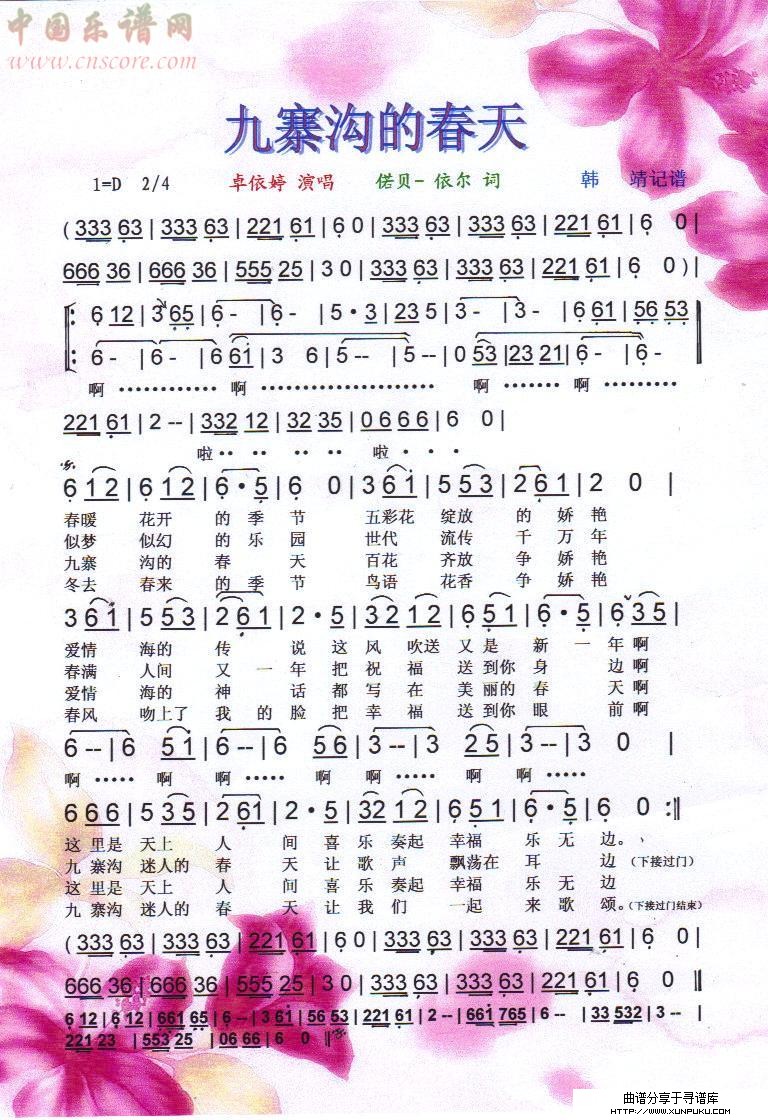 中国乐谱网
www.cnscore.com
九寨沟的春天
1=D 2/4 卓依婷 演唱 偌贝-依尔 词 韩 靖记谱
( 333 63 | 333 63 | 221 61 | 6 0 | 333 63 | 333 63 | 221 61 | 6 0 |
666 36 | 666 36 | 555 25 | 3 0 | 333 63 | 333 63 | 221 61 | 6 0 ) |
6 12 | 3 65 | 6 - | 6 - | 5 · 3 | 23 5 | 3 - | 3 - | 6 61 | 56 53
6 - | 6 - | 6 61 | 3 6 | 5 -- | 5 -- | 0 53 | 23 21 | 6 - | 6 -
啊 ············ 啊 ····················· 啊 ······· 啊 ·········
221 61 | 2 -- | 332 12 | 32 35 | 0 6 6 6 | 6 0 |
啦 · · · · · 啦 · · ·
6 12 | 6 12 | 6 · 5 | 6 0 | 3 61 | 5 53 | 2 61 | 2 0 |
春暖 花开 的 季 节 五彩花 绽放 的 娇 艳
似梦 似幻 的 乐 园 世代 流传 千 万 年
九寨 沟的 春 天 百花 齐放 争 娇 艳
冬去 春来 的 季 节 鸟语 花香 争 娇 艳
3 61 | 5 53 | 2 61 | 2 · 5 | 32 12 | 6 51 | 6 · 5 | 6 35 |
爱情 海的 传 说 这 风 吹送 又是 新 一 年啊
春满 人间 又 一 年 把 祝 福 送 到你 身 边啊
爱情 海的 神 话 都 写 在 美 丽的 春 天啊
春风 吻上了 我 的 脸 把 幸 福 送 到你 眼 前啊
6 -- | 6 51 | 6 -- | 6 56 | 3 -- | 3 25 | 3 -- | 3 0 |
啊 ····· 啊 啊 ····· 啊 啊 ····· 啊 啊 ·····
6 6 6 | 5 35 | 2 61 | 2 · 5 | 32 12 | 6 51 | 6 · 5 | 6 0 :||
这 里是 天上 人 间 喜 乐 奏起 幸福 乐 无 边。、
九 寨沟 迷人的 春 天 让 歌 声 飘荡在 耳 边 (下接过门)
这 里是 天上 人 间 喜 乐 奏起 幸福 乐 无 边
九 寨沟 迷人的 春 天 让 我 们 一起 来 歌 颂。(下接过门结束)
( 333 63 | 333 63 | 221 61 | 6 0 | 333 63 | 333 63 | 221 61 | 6 0 |
666 36 | 666 36 | 555 25 | 3 0 | 333 63 | 333 63 | 221 61 | 6 0 ||
6 12 | 6 12 | 661 65 | 6 -- | 3 61 | 56 53 | 221 61 | 2 -- | 661 765 | 6 -- | 33 532 | 3 -- |
221 23 | 553 25 | 06 66 | 6 0 ||
曲谱分享于寻谱库
HTTP://WWW.XUNPUKU.COM